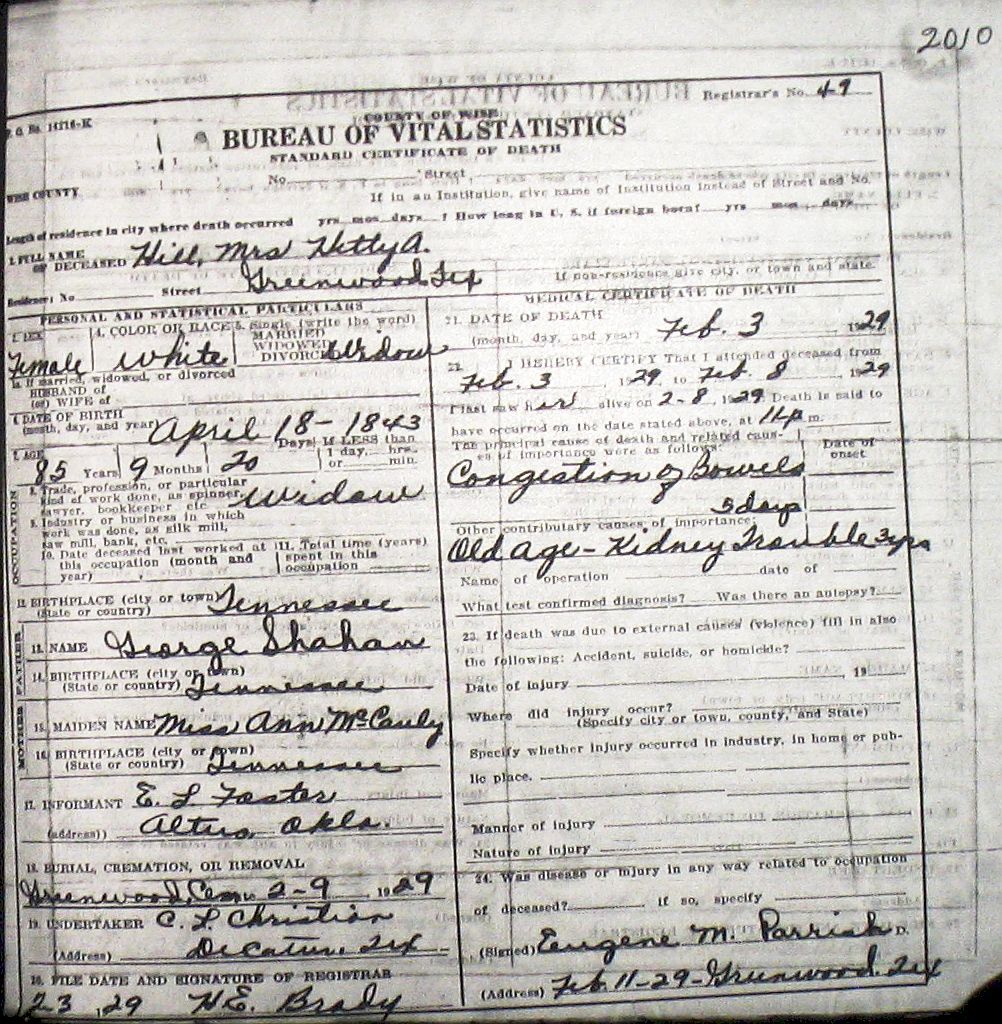 2010
Registrar's No. 49
COUNTY OF WISE
BUREAU OF VITAL STATISTICS
STANDARD CERTIFICATE OF DEATH
No. Street
WISE COUNTY If in an Institution, give name of Institution instead of Street and No.
Length of residence in city where death occurred yrs mos days ? How long in U. S. if foreign born? yrs mos days
1. FULL NAME OF DECEASED Hill, Mrs Hetty A.
Residence: No Street Greenwood Tex If non-residence give city, or town and state.
PERSONAL AND STATISTICAL PARTICULARS
2. SEX Female 4. COLOR OR RACE White 5. single (write the word) MARRIED WIDOWED DIVORCED Widow
5a If married, widowed, or divorced
HUSBAND of
(or) WIFE of
6. DATE OF BIRTH
(month, day, and year) April 18 - 1843
7. AGE 85 Years 9 Months 20 Days If LESS than 1 day, hrs. or min.
8. Trade, profession, or particular
kind of work done, as spinner,
sawyer, bookkeeper etc Widow
9. Industry or business in which
work was done, as silk mill,
saw mill, bank, etc.
10. Date deceased last worked at this occupation (month and year) 11. Total time (years) spent in this occupation
OCCUPATION
12. BIRTHPLACE (city or town)
(State or country) Tennessee
FATHER
13. NAME George Shahan
14. BIRTHPLACE (city or town)
(State or country) Tennessee
MOTHER
15. MAIDEN NAME Miss Ann McCauly
16. BIRTHPLACE (city or town)
(State or country) Tennessee
17. INFORMANT E. L Foster
(address) Altus, Okla.
18. BURIAL, CREMATION, OR REMOVAL
Greenwood, Cem 2-9 1929
19. UNDERTAKER C. L. Christian
(Address) Decatur, Tex
20. FILE DATE AND SIGNATURE OF REGISTRAR
23, 29 H.E. Brady
MEDICAL CERTIFICATE OF DEATH
21. DATE OF DEATH
(month, day, and year) Feb. 3 1929
22. I HEREBY CERTIFY That I attended deceased from
Feb. 3, 1929, to Feb. 8, 1929
I last saw her alive on 2-8, 1929. Death is said to
have occurred on the date stated above, at 11 p m.
The principal cause of death and related causes of importance were as follows: Date of onset
Congestion of Bowels
5 days
Other contributary causes of importance:
Old age - Kidney Trouble 3 yrs
Name of operation date of
What test confirmed diagnosis? Was there an autopsy?
23. If death was due to external causes (violence) fill in also
the following: Accident, suicide, or homicide?
Date of injury 19
Where did injury occur?
(Specify city or town, county, and State)
Specify whether injury occurred in industry, in home or pub-
lic place.
Manner of injury
Nature of injury
24. Was disease or injury in any way related to occupation
of deceased? if so, specify
(Signed) Eugene M. Parrish D.
(Address) Feb. 11-29 - Greenwood. Tex